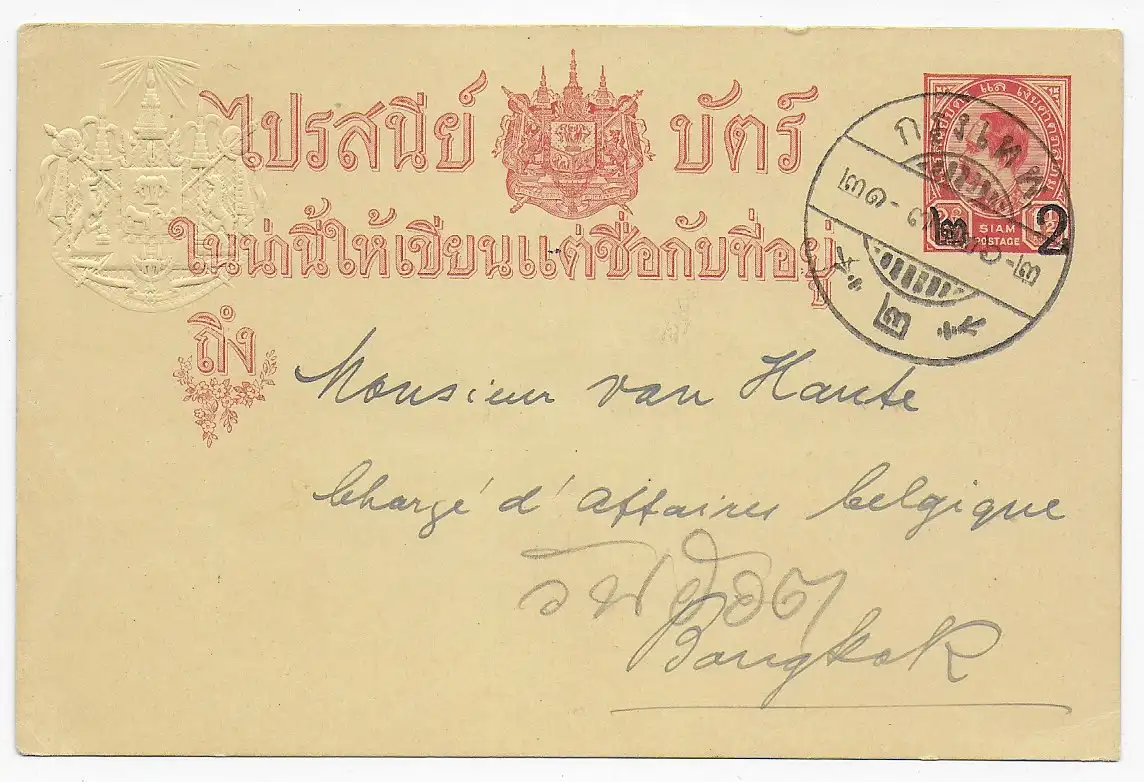 ไปรสนีย์ บัตร์
ในน่านี้ให้เขียนแต่ชื่อกับที่อยู่
ถึง
SIAM
POSTAGE
๒ 2
๒
Monsieur van Haute
Chargé d'affaires belgique
Bangkok